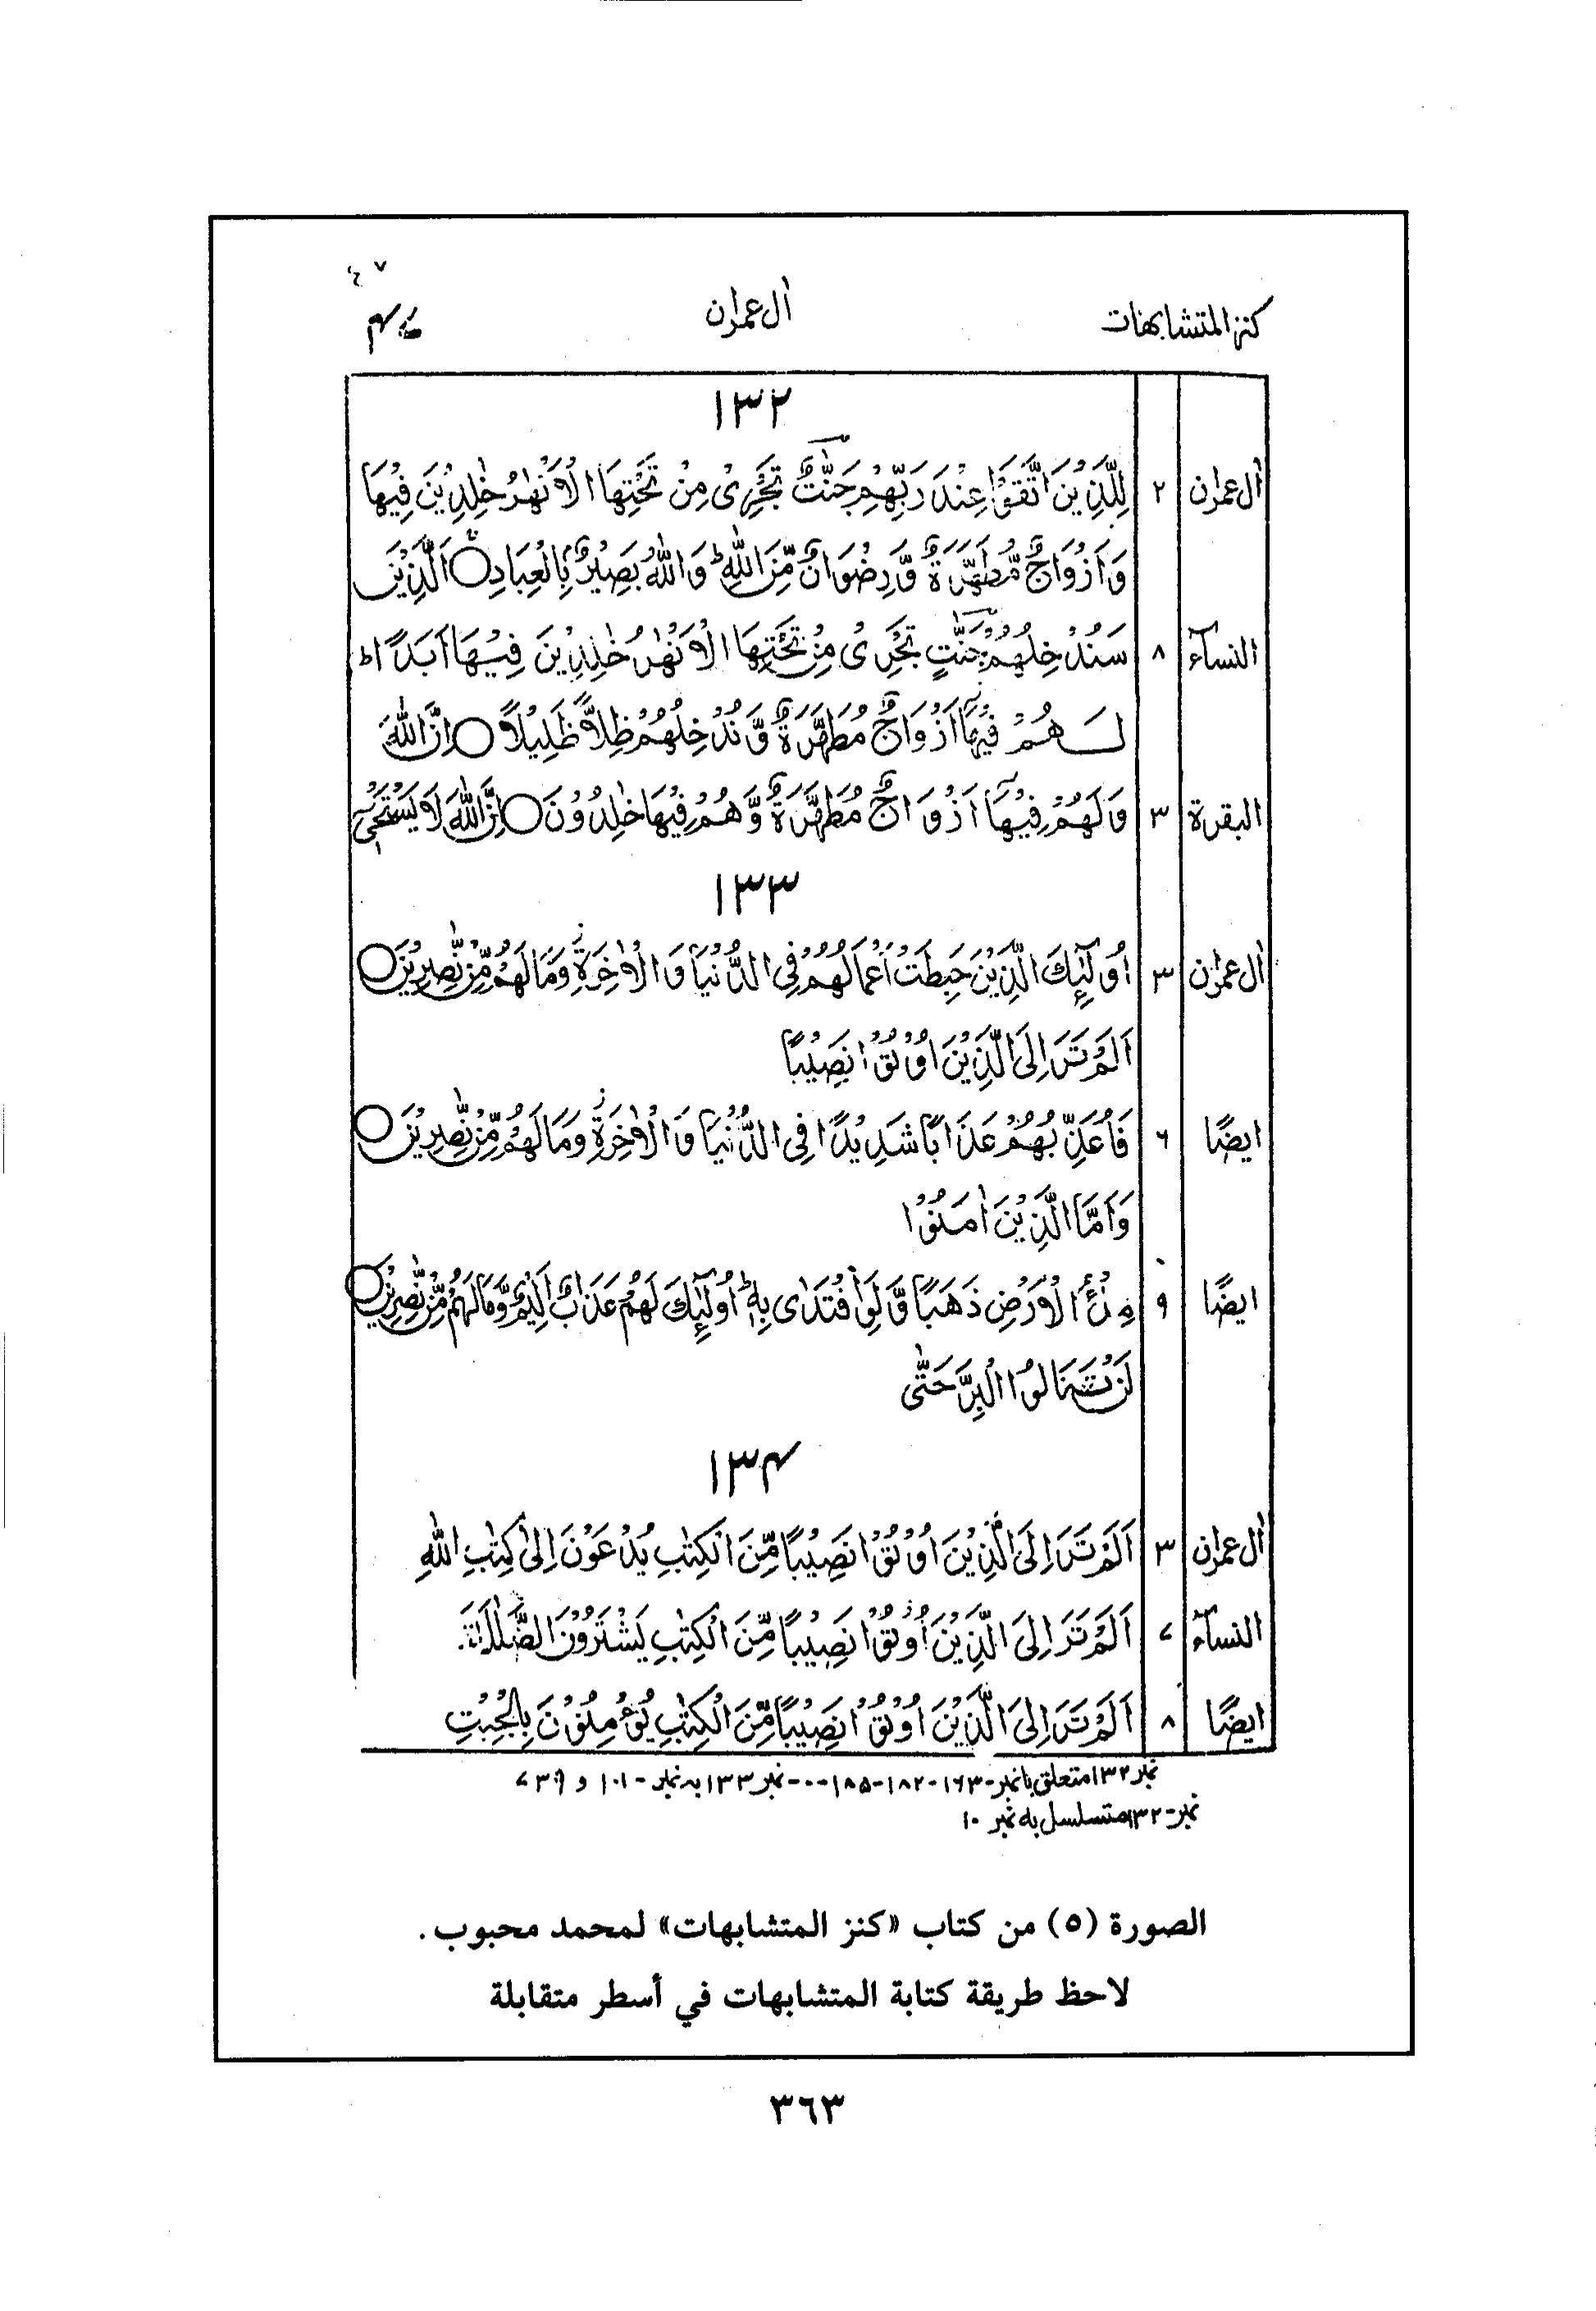 كنز المتشابهات اٰل عمرٰن
١٣٢
اٰل عمرٰن ٢ لِلَّذِيْنَ اتَّقَوْا عِنْدَ رَبِّهِمْ جَنّٰتٌ تَجْرِىْ مِنْ تَحْتِهَا الْاَنْهٰرُ خٰلِدِيْنَ فِيْهَا
وَاَزْوَاجٌ مُّطَهَّرَةٌ وَّرِضْوَانٌ مِّنَ اللّٰهِ ؕ وَاللّٰهُ بَصِيْرٌۢ بِالْعِبَادِ ○ اَلَّذِيْنَ
النسآء ٨ سَنُدْخِلُهُمْ جَنّٰتٍ تَجْرِىْ مِنْ تَحْتِهَا الْاَنْهٰرُ خٰلِدِيْنَ فِيْهَا اَبَدًا ؕ
لَهُمْ فِيْهَآ اَزْوَاجٌ مُّطَهَّرَةٌ وَّنُدْخِلُهُمْ ظِلًّا ظَلِيْلًا ○ اِنَّ اللّٰهَ
البقرة ٣ وَلَهُمْ فِيْهَآ اَزْوَاجٌ مُّطَهَّرَةٌ وَّهُمْ فِيْهَا خٰلِدُوْنَ ○ اِنَّ اللّٰهَ لَا يَسْتَحْيٖٓ
١٣٣
اٰل عمرٰن ٣ اُولٰٓئِكَ الَّذِيْنَ حَبِطَتْ اَعْمَالُهُمْ فِى الدُّنْيَا وَالْاٰخِرَةِ ز وَمَا لَهُمْ مِّنْ نّٰصِرِيْنَ ○
اَلَمْ تَرَ اِلَى الَّذِيْنَ اُوْتُوْا نَصِيْبًا
ايضًا ٦ فَاُعَذِّبُهُمْ عَذَابًا شَدِيْدًا فِى الدُّنْيَا وَالْاٰخِرَةِ ز وَمَا لَهُمْ مِّنْ نّٰصِرِيْنَ ○
وَاَمَّا الَّذِيْنَ اٰمَنُوْا
ايضًا ٩ مِّلْءُ الْاَرْضِ ذَهَبًا وَّلَوِ افْتَدٰى بِهٖ ؕ اُولٰٓئِكَ لَهُمْ عَذَابٌ اَلِيْمٌ وَّمَا لَهُمْ مِّنْ نّٰصِرِيْنَ ○
لَنْ تَنَالُوا الْبِرَّ حَتّٰى
١٣۴
اٰل عمرٰن ٣ اَلَمْ تَرَ اِلَى الَّذِيْنَ اُوْتُوْا نَصِيْبًا مِّنَ الْكِتٰبِ يُدْعَوْنَ اِلٰى كِتٰبِ اللّٰهِ
النسآء ٧ اَلَمْ تَرَ اِلَى الَّذِيْنَ اُوْتُوْا نَصِيْبًا مِّنَ الْكِتٰبِ يَشْتَرُوْنَ الضَّلٰلَةَ
ايضًا ٨ اَلَمْ تَرَ اِلَى الَّذِيْنَ اُوْتُوْا نَصِيْبًا مِّنَ الْكِتٰبِ يُؤْمِنُوْنَ بِالْجِبْتِ
نمبر ١٣٢ متعلق بانمبر-١٦٣-١٨٢-١٨٥--٠-نمبر ١٣٣ به نمبر-١٠١ و ٧٣٩
نمبر-١٣٢ متسلسل به نمبر ١٠
الصورة (٥) من كتاب «كنز المتشابهات» لمحمد محبوب .
لاحظ طريقة كتابة المتشابهات في أسطر متقابلة
٣٦٣